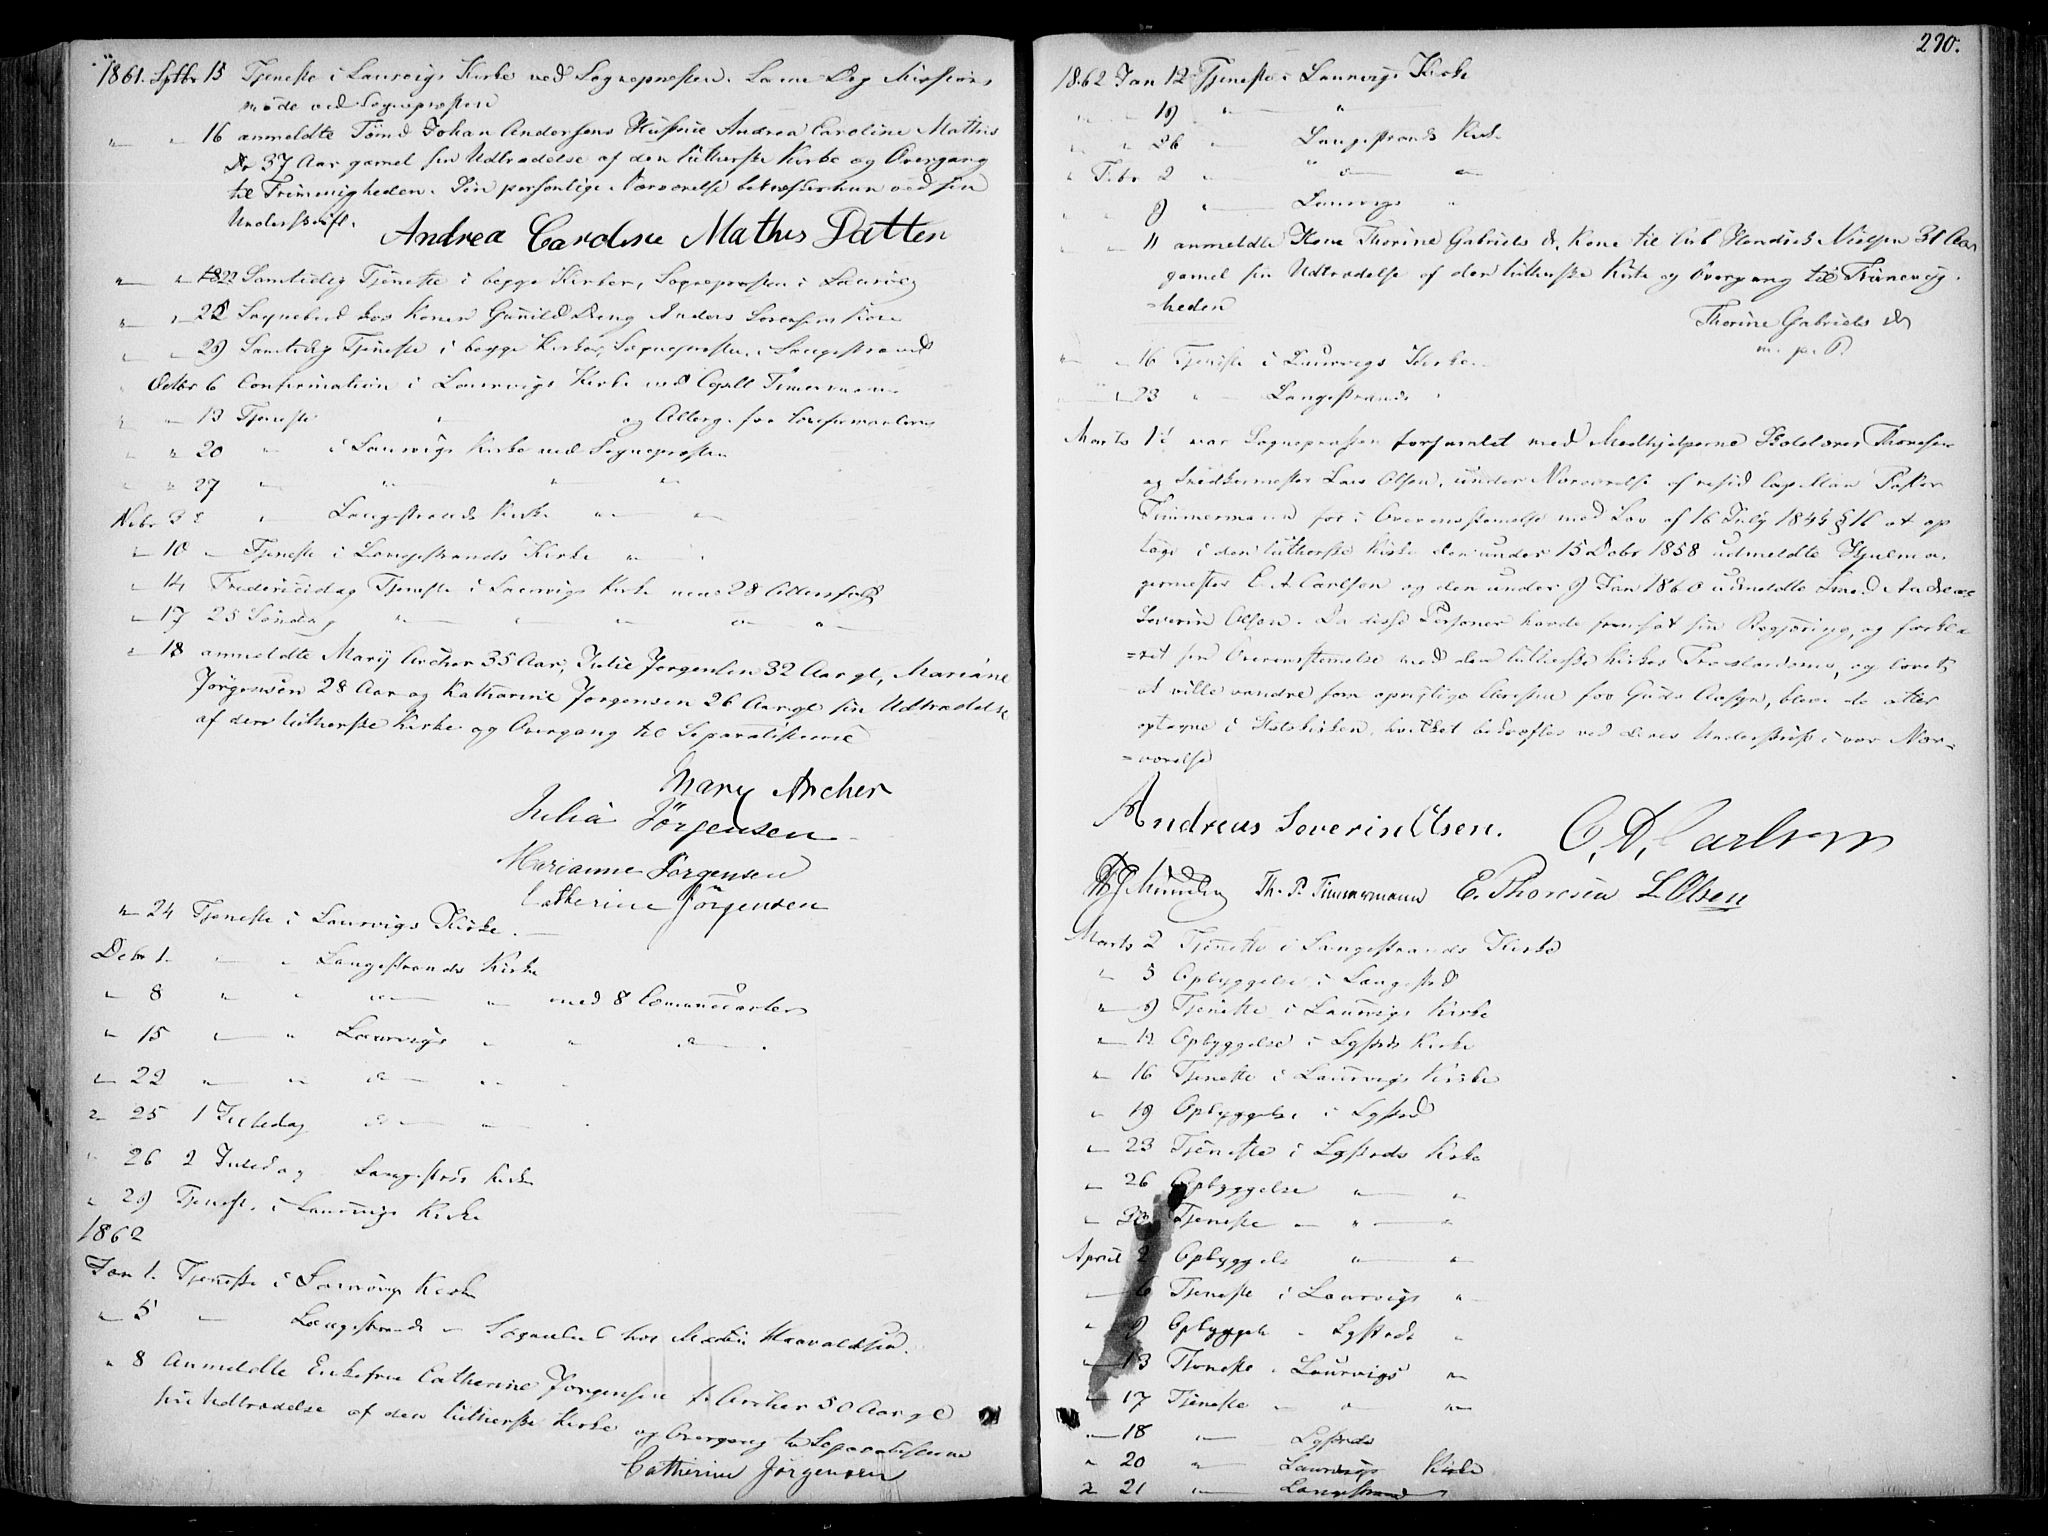 1861. Sptbr 15 Tjeneste i Laurvigs Kirke ved Sognepræsten. Samme Dag Missions
møde ved Sognepræsten
" " 16 anmeldte Tømd Johan Andersens Hustrue Andrea Caroline Mathis
Dr 37 Aar gamel sin Udtrædelse af den lutherske Kirke og Overgang
til Frimenigheden. Sin personlige Nærværelse bekræfter hun ved sin
Underskrift.
Andrea Caroline Mathis Datter
" " 22 Samtidig Tjeneste i begge Kirker, Sognepræsten i Laurvig
" " 22 Sognebud hos Konen Gunild Anders Sørensens Kone
" " 29 Samtidig Tjeneste i begge Kirker, Sognepræsten i Langestrand
Octbr 6 Confirmation i Laurvigs Kirke ved Capell Timermann
" " 13 Tjeneste " og Alterg. for Confirmanterne
" " 20 " i Laurvigs Kirke ved Sognepræsten
" " 27 " " " "
Nvbr 3 " Langestrands Kirke " "
" 10 " Tjeneste i Langestrands Kirke " "
" 14 Fredericidag Tjeneste i Laurvigs Kirke med 28 Altersfolk
" 17 25 Søndag " " " " "
" 18 anmeldte Mary Archer 35 Aar, Julie Jørgensen 32 Aar gl, Mariane
Jørgensen 28 Aar og Katharine Jørgensen 26 Aar gl sin Udtrædelse
af den lutherske Kirke og Overgang til Separatisterne
Mary Archer
Julia Jörgensen
Marianne Jörgensen
Catherine Jörgensen
" 24 Tjeneste i Laurvigs Kirke.
Debr 1. " " Langestrands Kirke
" 8 " " " " med 8 Comunicanter
" 15 " " Laurvigs " " " .
" 22 " " " "
" 25 1 Juledag " "
" 26 2 Juledag Langestrds Kirke
" 29 Tjeneste i Laurvigs Kirke
1862
Jan 1. Tjeneste i Laurvigs Kirke
" 5 " Langestrands " Sognebud hos Martin Haavaldsen.
" 8 Anmeldte Enkefrue Catherine Jørgensen f. Archer 50 Aar gl
sin Udtrædelse af den lutherske Kirke og Overgang til Separatisterne
Catherine Jørgensen
290.
1862 Jan 12 Tjeneste i Laurvigs Kirke
" 19 " "
" " 26 " Langestrands Kirke
" Febr 2 " " " "
" " 9 " Laurvigs "
" " 11 anmeldte Kone Thorine Gabriels D. Kone til Arb Hendrich Nielsen 31 Aar
gamel sin Udtrædelse af den lutherske Kirke og Overgang til Frimenig-
=heden
Thorine Gabriels D
m. p. P.
" " 16 Tjeneste i Laurvigs Kirke
" " 23 " Langestrands "
Marts 1 var Sognepræsten forsamlet med Medhjelperne Thoresen
og Snedkermester Lars Olsen, under Nærværelse af resid Capellan Pastor
Timmermann for i Overensstemmelse med Lov af 16 July 1845 § 16 at op
tage i den lutherske Kirke den under 15 Debr 1858 udmeldte Hjulma-
germester C. A. Carlsen og den under 9 Jan 1860 udmeldte Smed Andreas
Severin Olsen. Da disse Personer havde fremsat sin Begjæring, og erklæ
=ret sin Overensstemmelse med den lutherske Kirkes Troeslærdomme, og lovet
at ville vandre som oprigtige Christne for Guds Aasyn, bleve de atter
optagne i Statskirken, hvilket bekræftes ved deres Underskrift i vor Nær-
=værelse
Andreas Severin Olsen. C. A. Carlsen
Th. P. Timmermann E. Thoresen L Olsen
Marts 2 Tjeneste i Langestrands Kirke
" 5 Opbyggelse i Langestrd
" 9 Tjeneste i Laurvigs Kirke
" 12 Opbyggelse i Lgstrds Kirke
" 16 Tjeneste i Laurvigs Kirke
" 19 Opbyggelse i Lgstrd
" 23 Tjeneste i Lgstrds Kirke
" 26 Opbyggelse " "
" 30 Tjeneste " " "
April 2 Opbyggelse " "
" 6 Tjeneste i Laurvigs "
" 9 Opbyggels " Lgstrds "
" 13 Tjeneste i Laurvigs "
" 17 Tjeneste " " "
" 18 " Lgstrds
" 20 " Laurvigs Kirke
" 21 " Langestrands